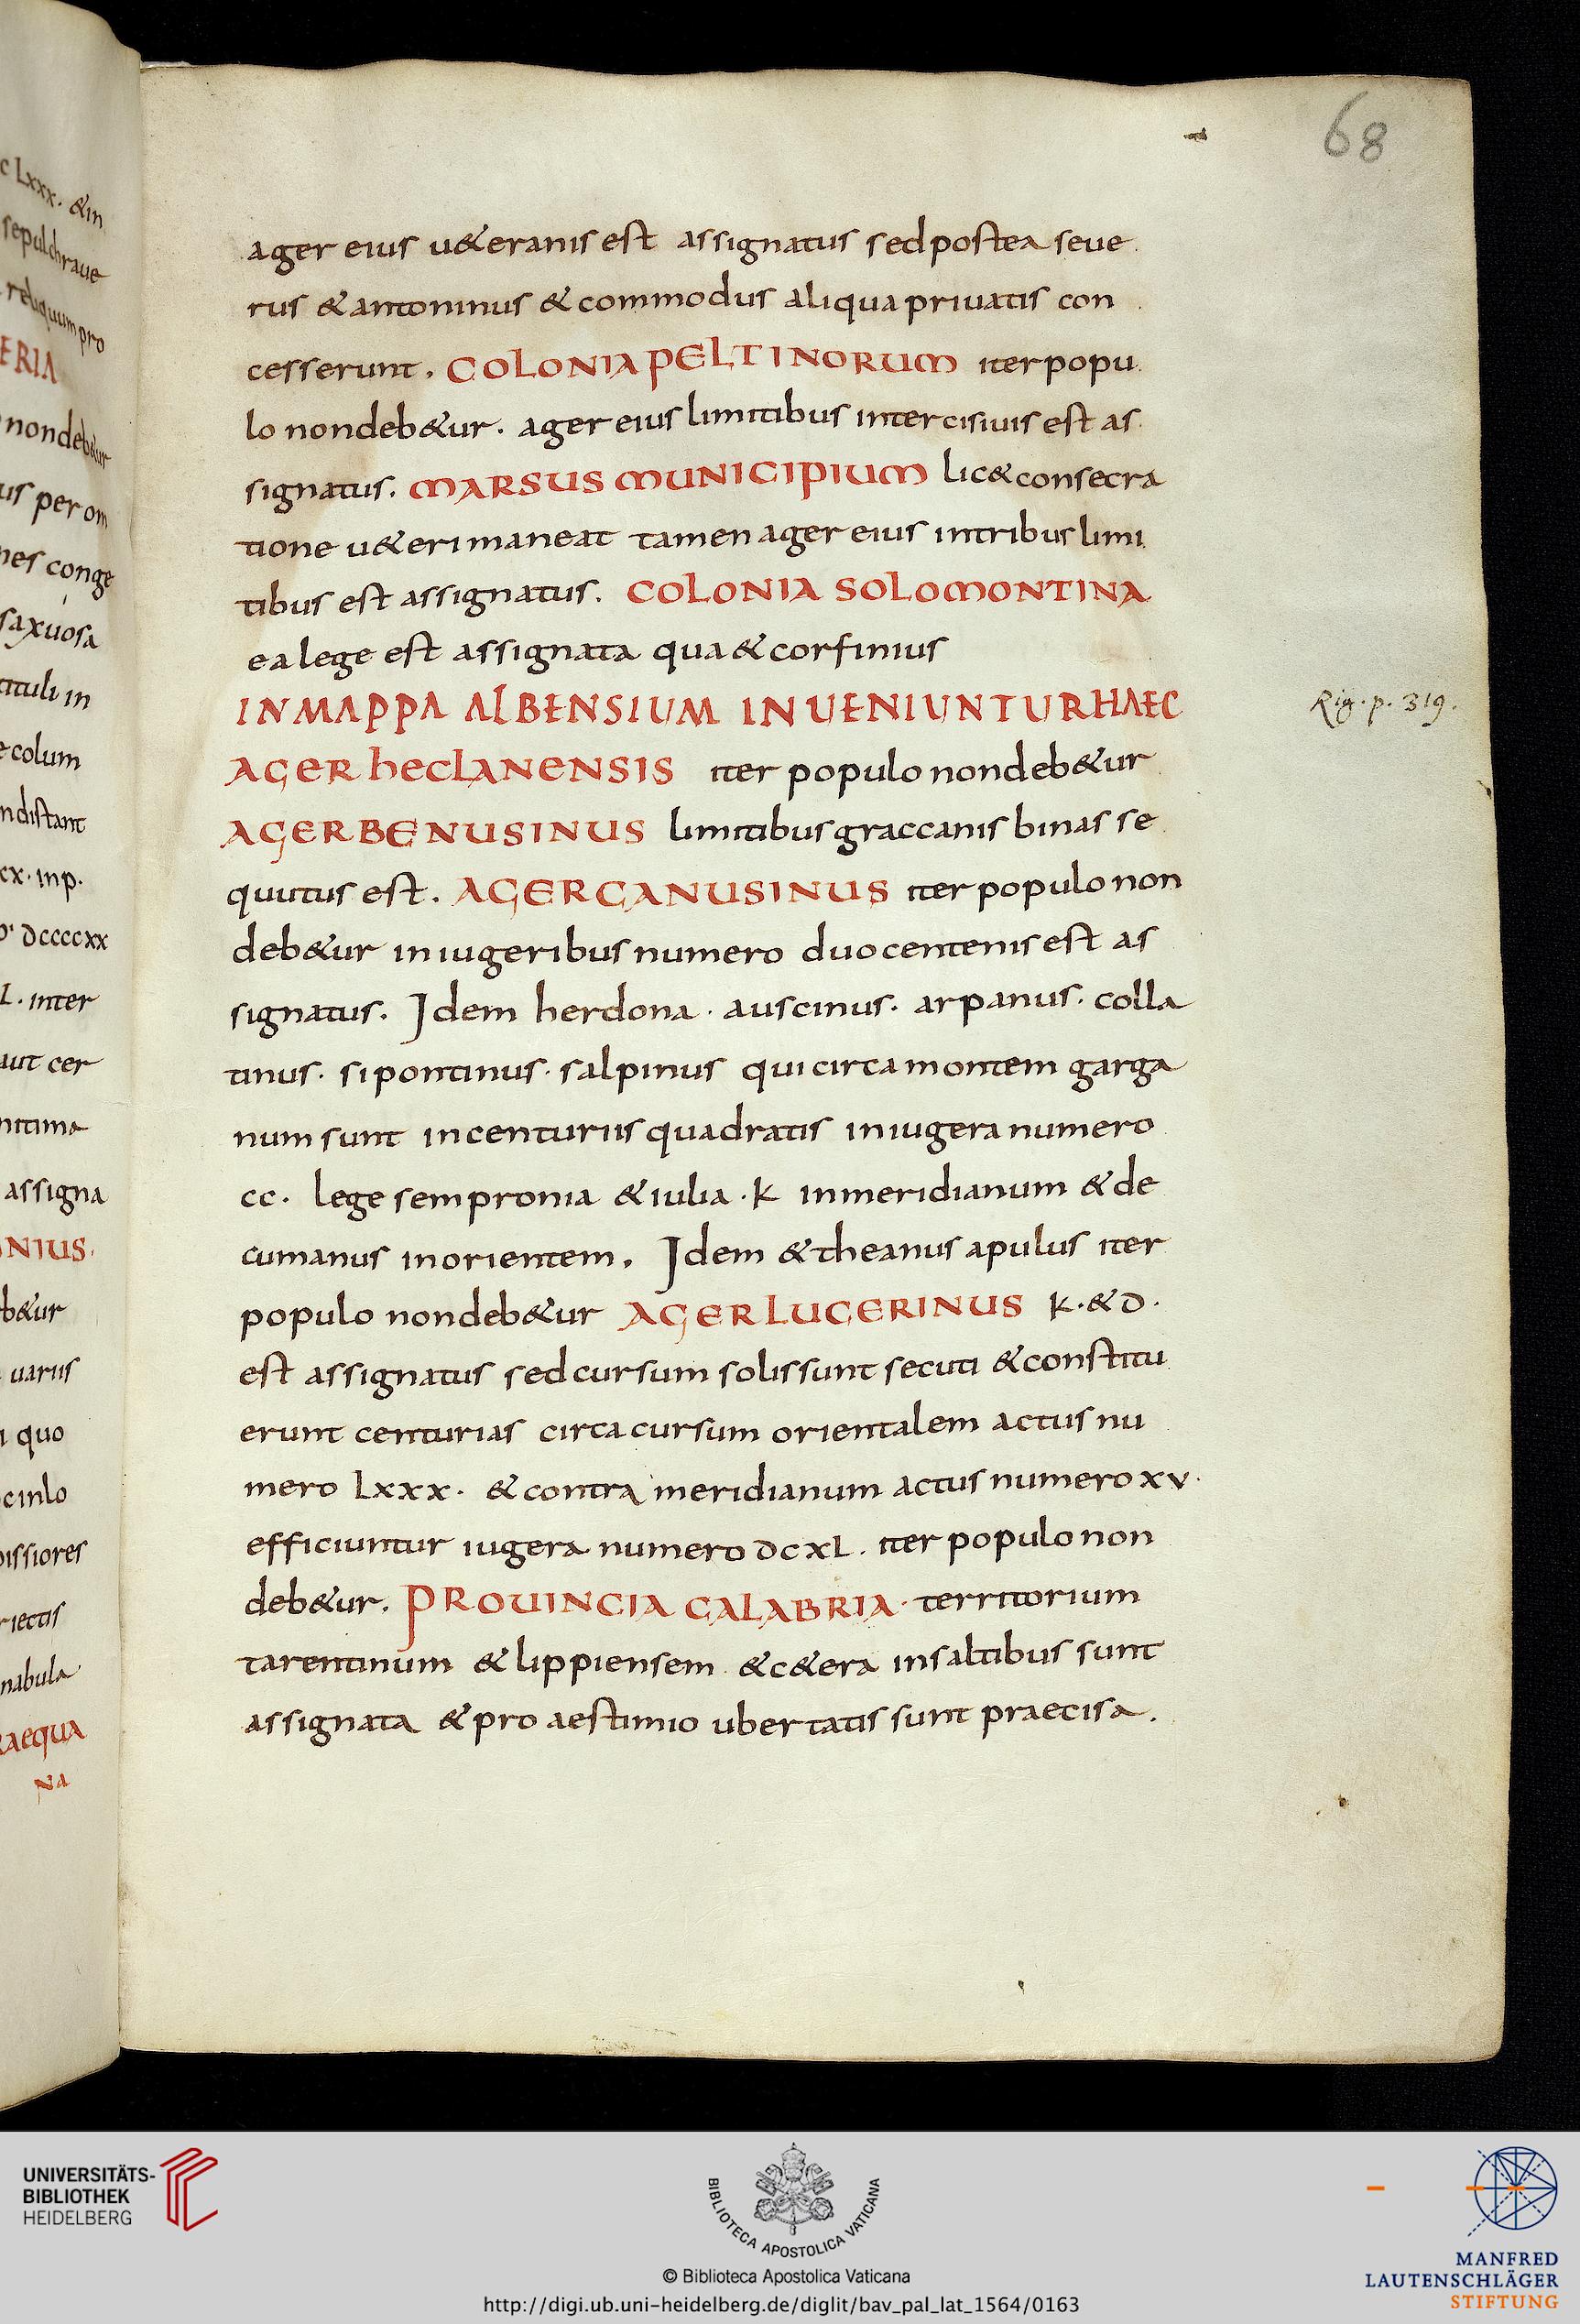 68
ager eius u&eranis est assignatus sed postea seue
rus & antoninus & commodus aliqua priuatis con
cesserunt. COLONIA PELTINORUM iter popu
lo non deb&ur. ager eius limitibus intercisiuis est as
signatus. MARSUS MUNICIPIUM lic& consecra
tione u&eri maneat tamen ager eius in tribus limi
tibus est assignatus. COLONIA SOLOMONTINA
ea lege est assignata qua & corfinius
IN MAPPA ALBENSIUM INUENIUNTUR HAEC
Rig. p. 319.
AGER HECLANENSIS iter populo non deb&ur
AGER BENUSINUS limitibus graccanis binas se
quutus est. AGER CANUSINUS iter populo non
deb&ur in iugeribus numero duocentenis est as
signatus. Idem herdona. auscinus. arpanus. colla
tinus. sipontinus. salpinus qui circa montem garga
num sunt in centuriis quadratis in iugera numero
cc. lege sempronia & iulia. K in meridianum & de
cumanus in orientem. Idem & theanus apulus iter
populo non deb&ur AGER LUCERINUS K. & D.
est assignatus sed cursum solis sunt secuti & constitu
erunt centurias circa cursum orientalem actus nu
mero Lxxx. & contra meridianum actus numero xv.
efficiuntur iugera numero DCXL. iter populo non
deb&ur. PROUINCIA CALABRIA. territorium
tarentinum & lippiensem & c&era in saltibus sunt
assignata & pro aestimio ubertatis sunt praecisa.
c Lxxx. & in
sepulchra ue
reliquum pro
ERIA
non deb&ur
us per om
nes conge
saxuosa
tituli in
colum
ndistant
xx. in p.
dccccxx
L. inter
aut cer
ntima
assigna
NIUS.
b&ur
uariis
quo
cinlo
issiores
riectis
nabula
RAEQUA
NA
UNIVERSITÄTS-
BIBLIOTHEK
HEIDELBERG
BIBLIOTECA APOSTOLICA VATICANA
© Biblioteca Apostolica Vaticana
http://digi.ub.uni-heidelberg.de/diglit/bav_pal_lat_1564/0163
MANFRED
LAUTENSCHLÄGER
STIFTUNG